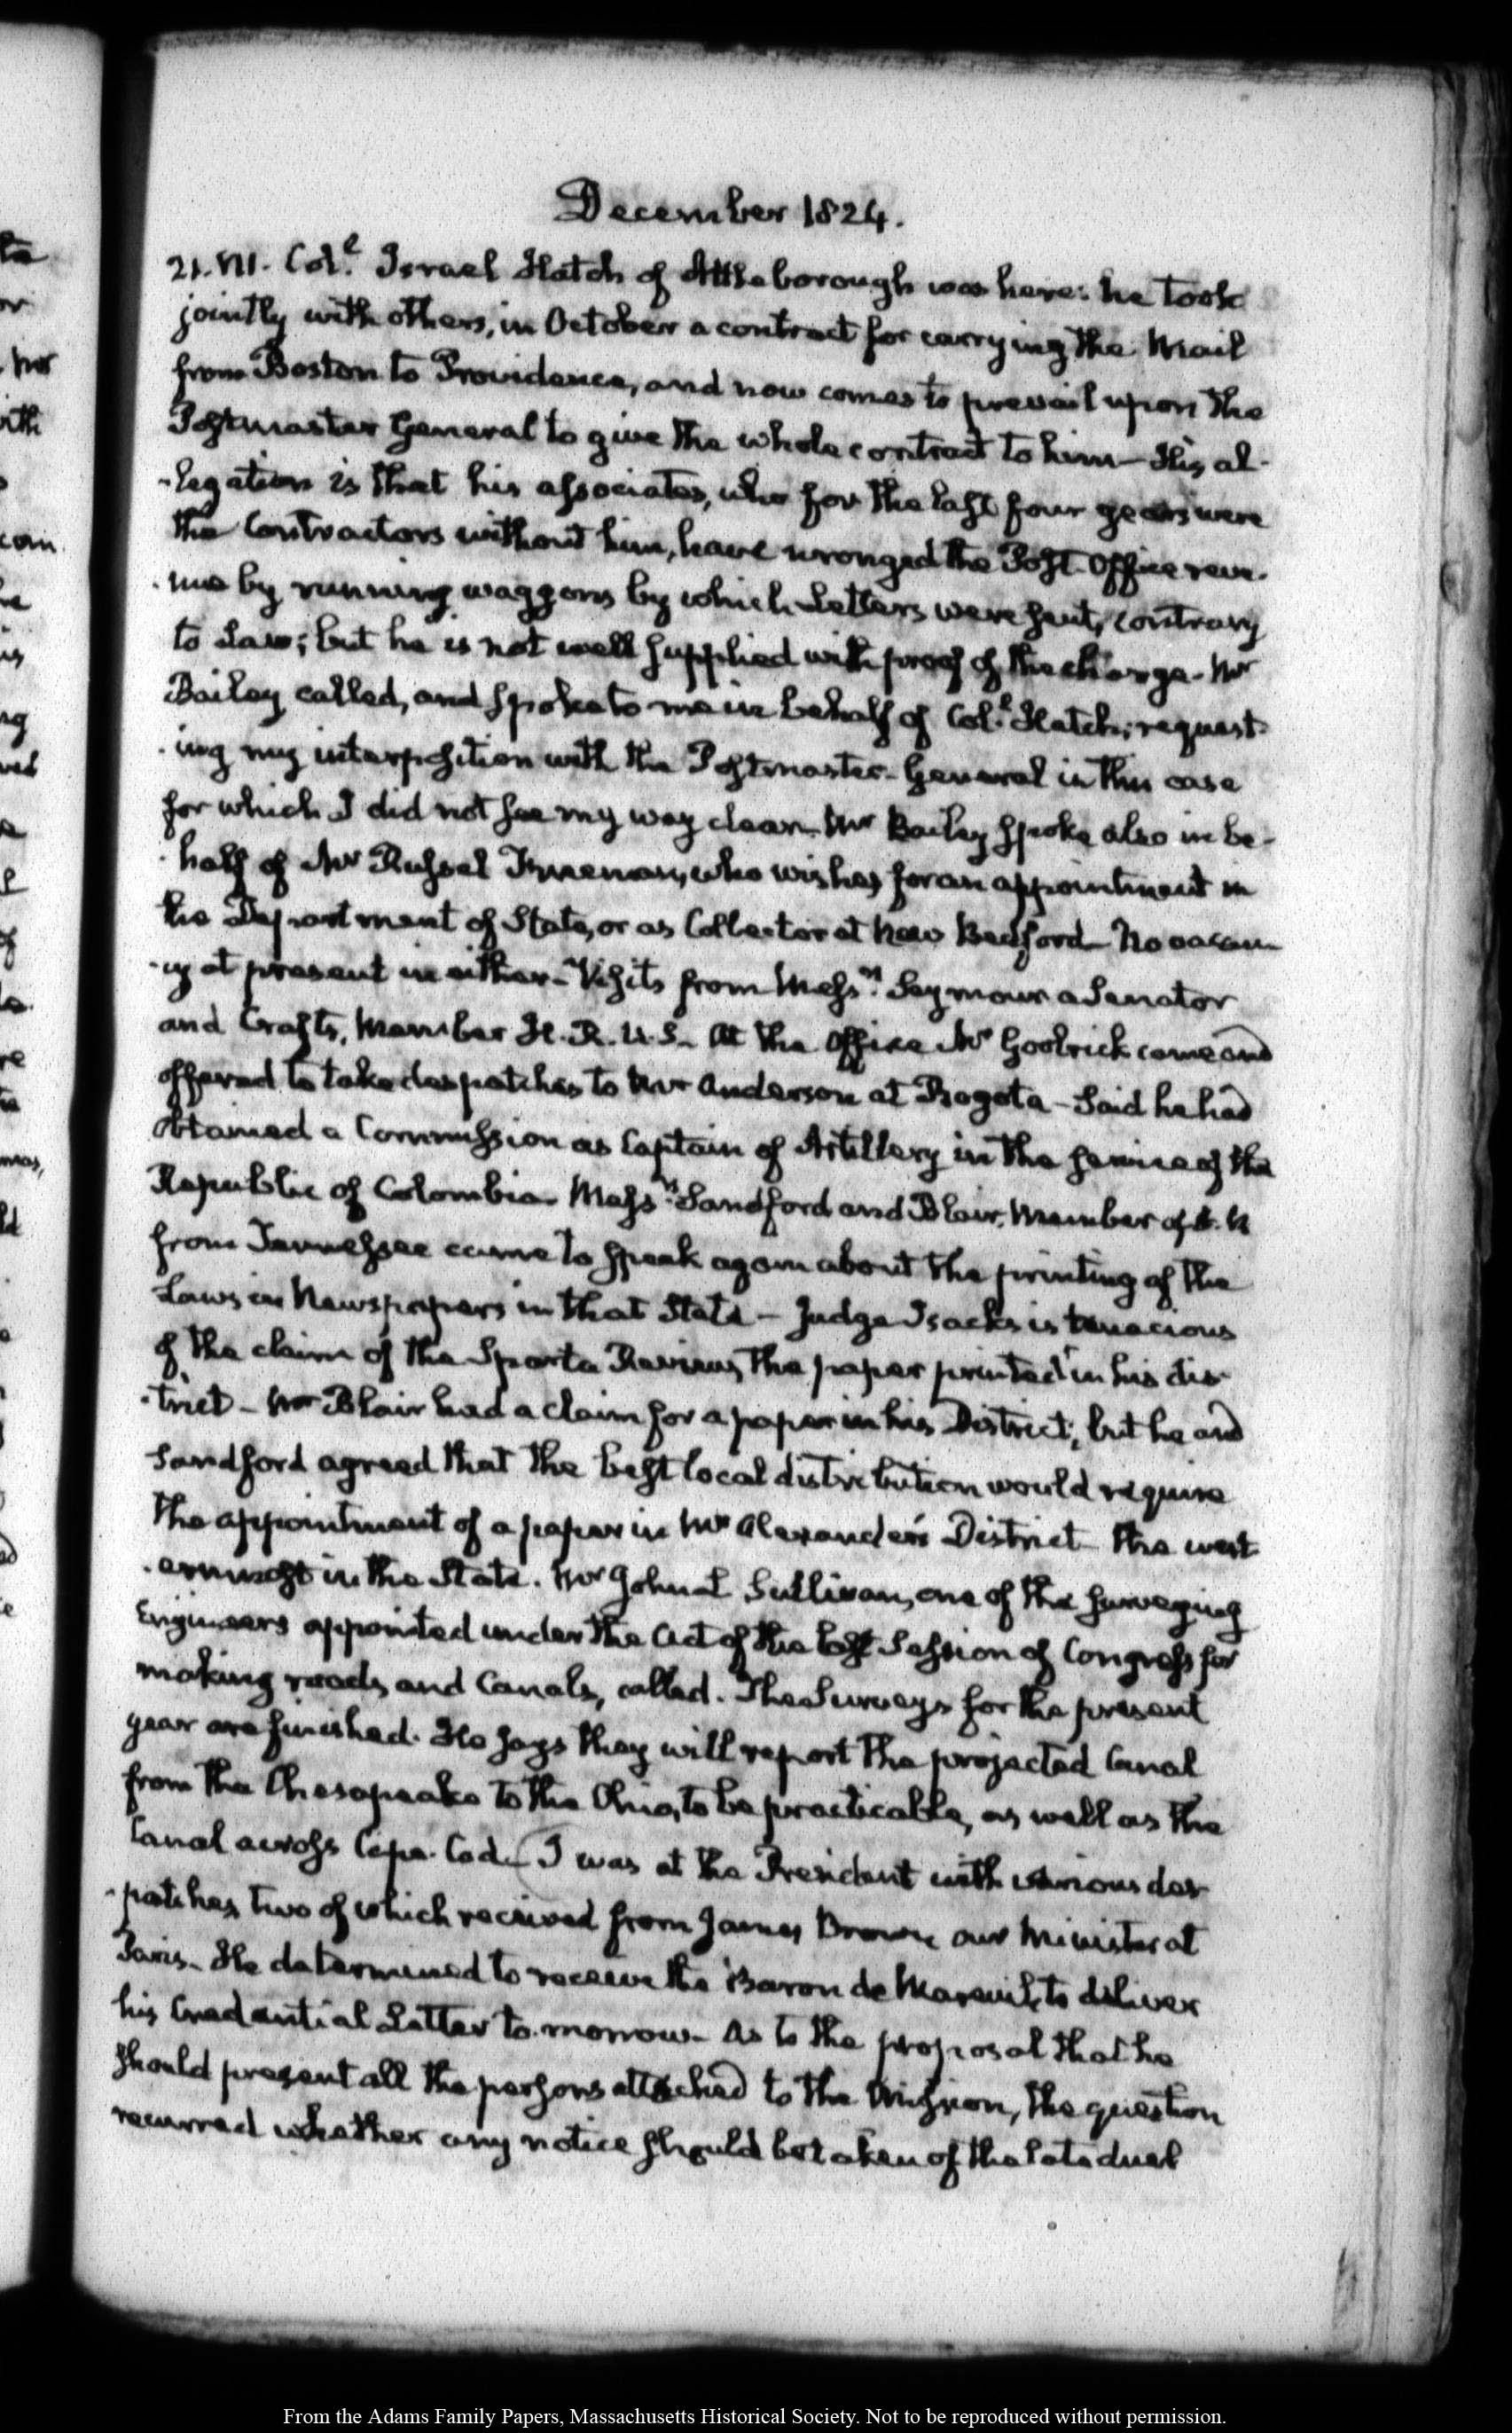 December 1824.
21. VII. Col.l Israel Hatch of Attleborough was here: he took
jointly with others, in October a contract for carrying the Mail
from Boston to Providence, and now comes to prevail upon the
Postmaster General to give the whole contract to him— His al-
-legation is that his associates, who for the last four years were
the Contractors without him, have wronged the Post-Office reve-
-nue by running waggons by which Letters were sent, contrary
to Law; but he is not well supplied with proof of the charge. Mr
Bailey called, and spoke to me in behalf of Col.l Hatch; request-
-ing my interposition with the Postmaster-General in this case
for which I did not see my way clear. Mr Bailey spoke also in be-
-half of Mr Russel Freeman, who wishes for an appointment in
the Department of State, or as Collector at New Bedford— No vacan-
-cy at present in either— Visits from Messrs. Seymour a Senator
and Crafts, Member H.R.U.S.— At the Office Mr Goolrick came and
offered to take despatches to Mr Anderson at Bogota— Said he had
obtained a Commission as Captain of Artillery in the service of the
Republic of Colombia— Messrs. Sandford and Blair, Member of
from Tennessee came to speak again about the printing of the
Laws in Newspapers in that State— Judge Isacks is tenacious
of the claim of the Sparta Review, the paper printed in his dis-
-trict— Mr Blair had a claim for a paper in his District; but he and
Sandford agreed that the best local distribution would require
the appointment of a paper in Mr Alexander's District— the west-
-ernmost in the State. Mr John L Sullivan, one of the surveying
Engineers appointed under the Act of the last Session of Congress for
making roads and Canals, called. The Surveys for the present
year are finished. He says they will report the projected Canal
from the Chesapeake to the Ohio, to be practicable, as well as the
Canal across Cape-Cod— I was at the President with various des-
-patches two of which received from James Brown our Minister at
Paris— He determined to receive the Baron de Mareuil, to deliver
his Credential Letter to-morrow— As to the proposal that he
should present all the persons attached to the Mission, the question
recurred whether any notice should be taken of the late duel
From the Adams Family Papers, Massachusetts Historical Society. Not to be reproduced without permission.